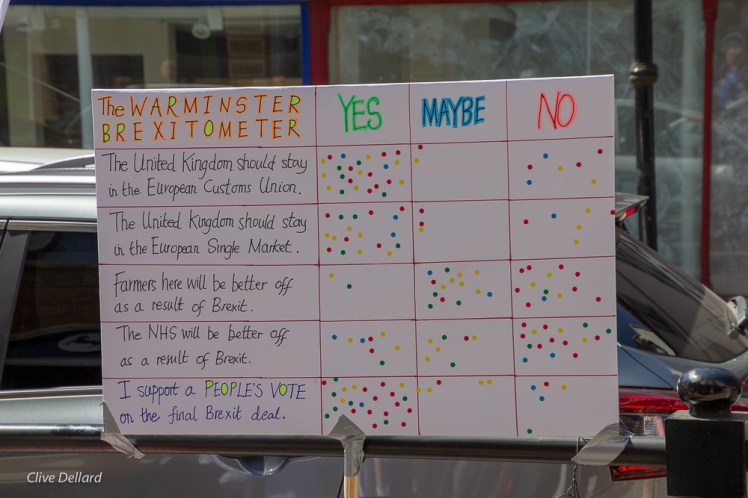 The WARMINSTER
BREXITOMETER
YES
MAYBE
NO
The United Kingdom should stay
in the European Customs Union.
The United Kingdom should stay
in the European Single Market.
Farmers here will be better off
as a result of Brexit.
The NHS will be better off
as a result of Brexit.
I support a PEOPLE'S VOTE
on the final Brexit deal.
Clive Dellard